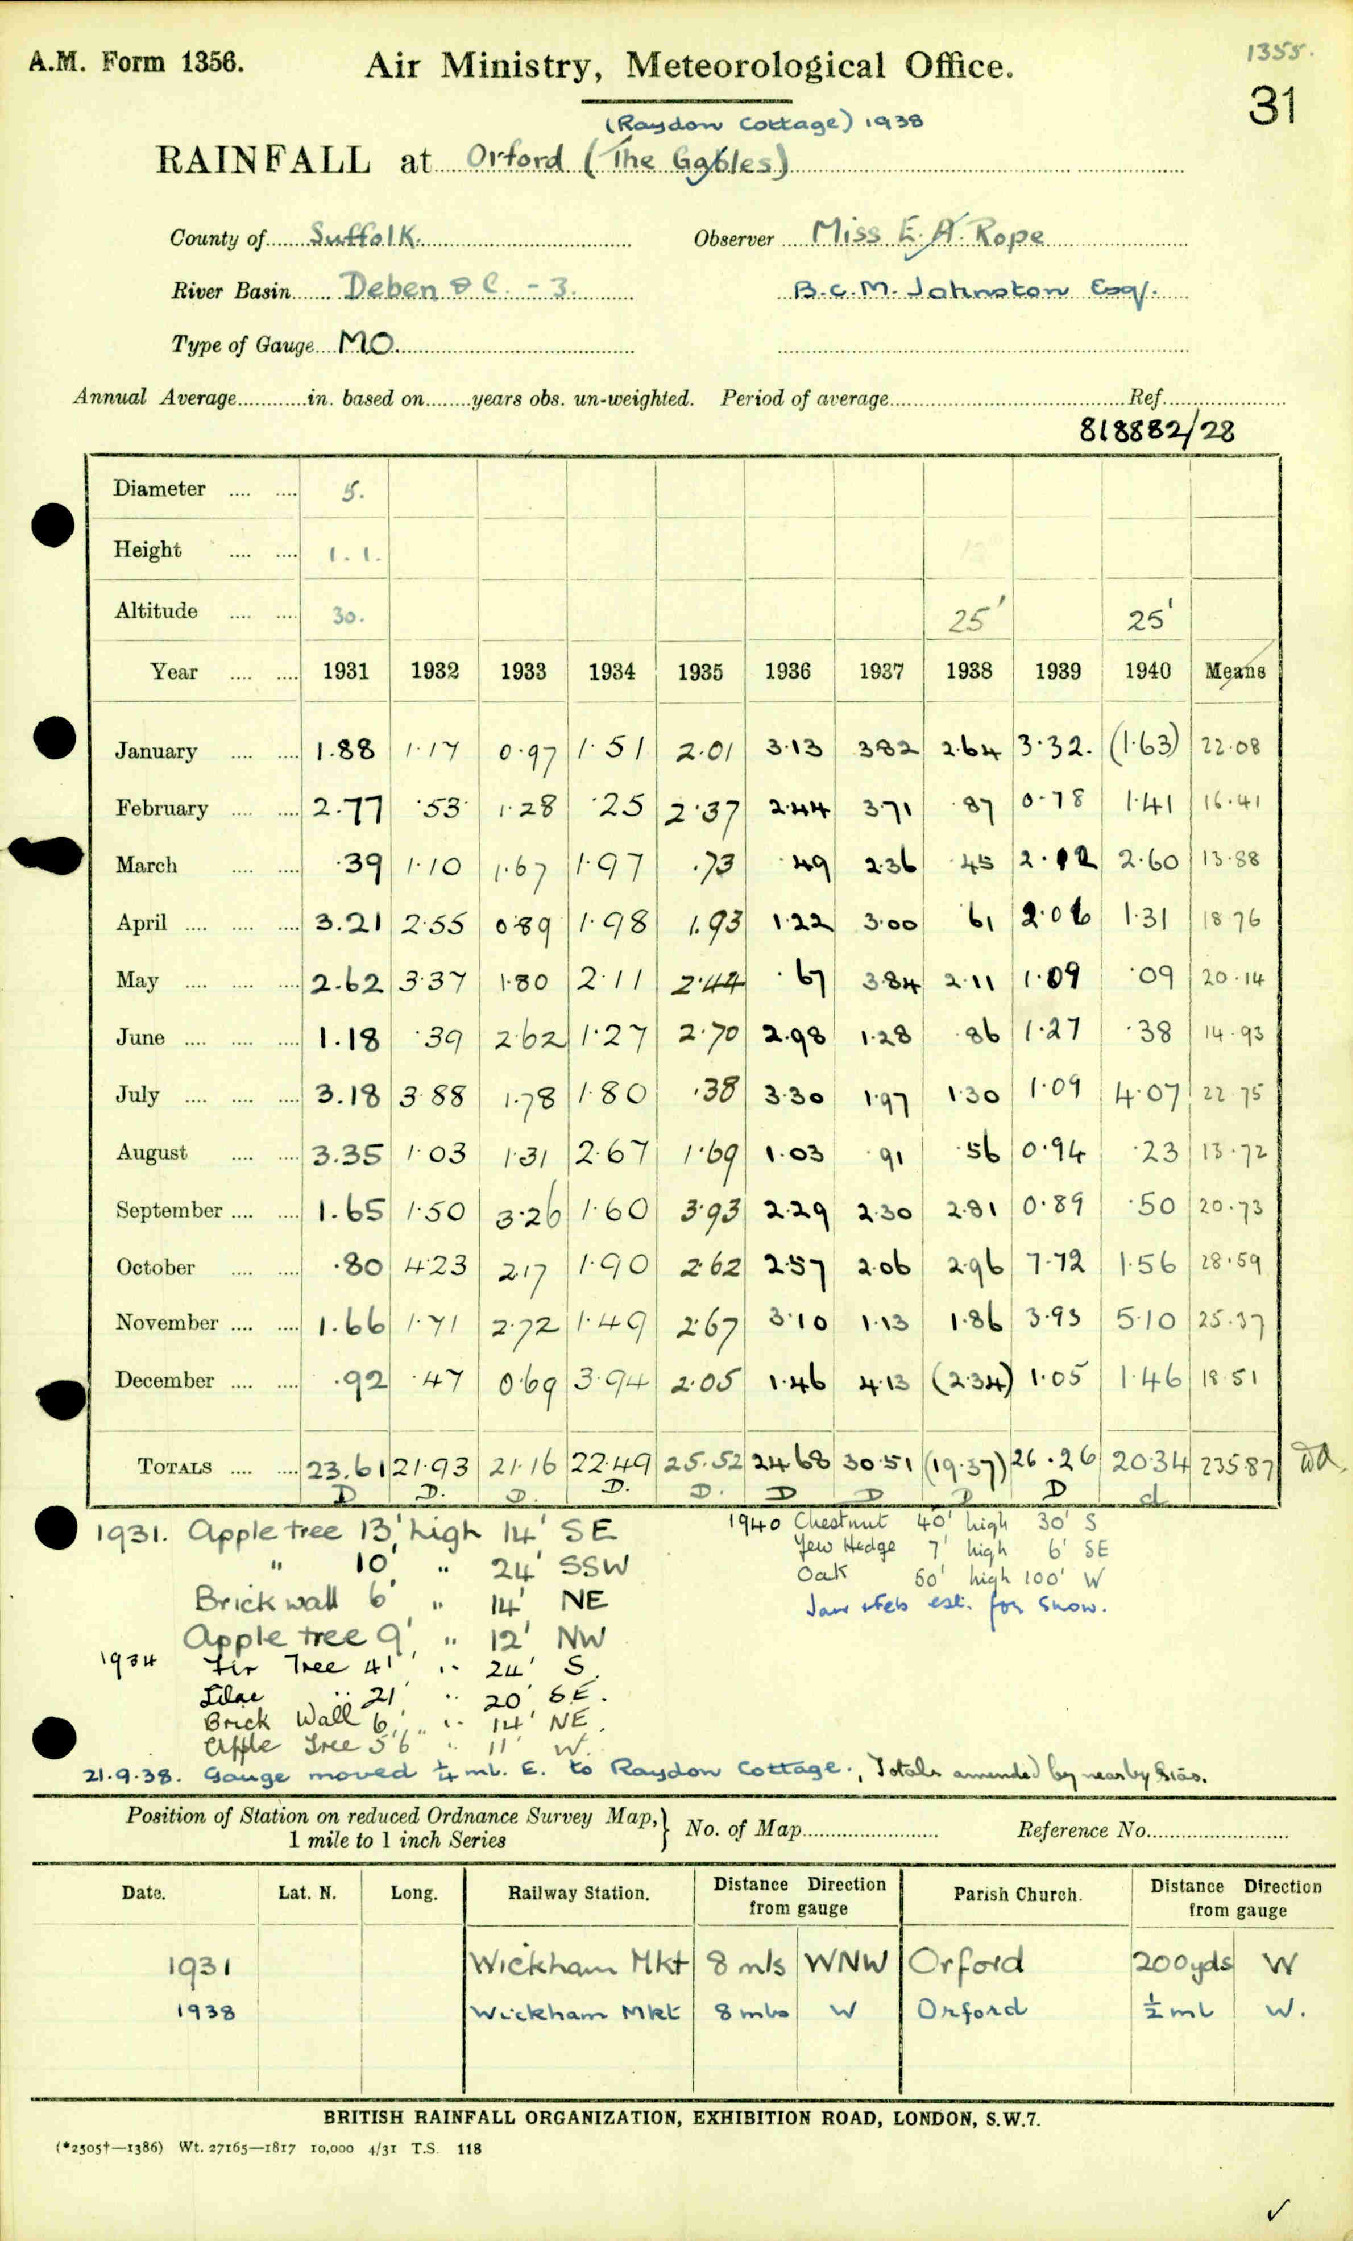 A.M. Form 1356.
Air Ministry, Meteorological Office.
1355.
31
(Raydon Cottage) 1938
RAINFALL at Orford (The Gables)
County of Suffolk. Observer Miss E. A. Rope
River Basin Deben & C. - 3. B.C.M. Johnston Esq.
Type of Gauge MO.
Annual Average in. based on years obs. un-weighted. Period of average Ref.
818882/28
Diameter 5.
Height 1.1.
Altitude 30. 25' 25'
Year 1931 1932 1933 1934 1935 1936 1937 1938 1939 1940 Means
January 1.88 1.17 0.97 1.51 2.01 3.13 3.82 2.64 3.32. (1.63) 22.08
February 2.77 .53 1.28 .25 2.37 2.44 3.71 .87 0.78 1.41 16.41
March .39 1.10 1.67 1.97 .73 .49 2.36 .45 2.12 2.60 13.88
April 3.21 2.55 0.89 1.98 1.93 1.22 3.00 .61 2.06 1.31 18.76
May 2.62 3.37 1.80 2.11 2.44 .67 3.84 2.11 1.09 .09 20.14
June 1.18 .39 2.62 1.27 2.70 2.98 1.28 .86 1.27 .38 14.93
July 3.18 3.88 1.78 1.80 .38 3.30 1.97 1.30 1.09 4.07 22.75
August 3.35 1.03 1.31 2.67 1.69 1.03 .91 .56 0.94 .23 13.72
September 1.65 1.50 3.26 1.60 3.93 2.29 2.30 2.81 0.89 .50 20.73
October .80 4.23 2.17 1.90 2.62 2.57 2.06 2.96 7.72 1.56 28.59
November 1.66 1.71 2.72 1.49 2.67 3.10 1.13 1.86 3.93 5.10 25.37
December .92 .47 0.69 3.94 2.05 1.46 4.13 (2.34) 1.05 1.46 18.51
TOTALS 23.61 21.93 21.16 22.49 25.52 24.68 30.51 (19.37) 26.26 20.34 235.87
D D. D. D. D. D D D D d
1931. Apple tree 13' high 14' SE
" 10' " 24' SSW
Brick wall 6' " 14' NE
Apple tree 9' " 12' NW
1934 Fir Tree 41' " 24' S.
Lilac " 21' " 20' S.E.
Brick Wall 6' " 14' NE.
Apple Tree 5'6" " 11' W.
1940 Chestnut 40' high 30' S
Yew Hedge 7' high 6' SE
Oak 50' high 100' W
Jan & Feb est. for snow.
21.9.38. Gauge moved ¼ ml. E. to Raydon Cottage., Totals amended by nearby Stns.
Position of Station on reduced Ordnance Survey Map, } No. of Map Reference No.
1 mile to 1 inch Series
Date. Lat. N. Long. Railway Station. Distance Direction from gauge Parish Church. Distance Direction from gauge
1931 Wickham Mkt 8 mls WNW Orford 200yds W
1938 Wickham Mkt 8 mls W Orford ½ ml W.
BRITISH RAINFALL ORGANIZATION, EXHIBITION ROAD, LONDON, S.W.7.
(*2505†—1386) Wt. 27165—1817 10,000 4/31 T.S. 118